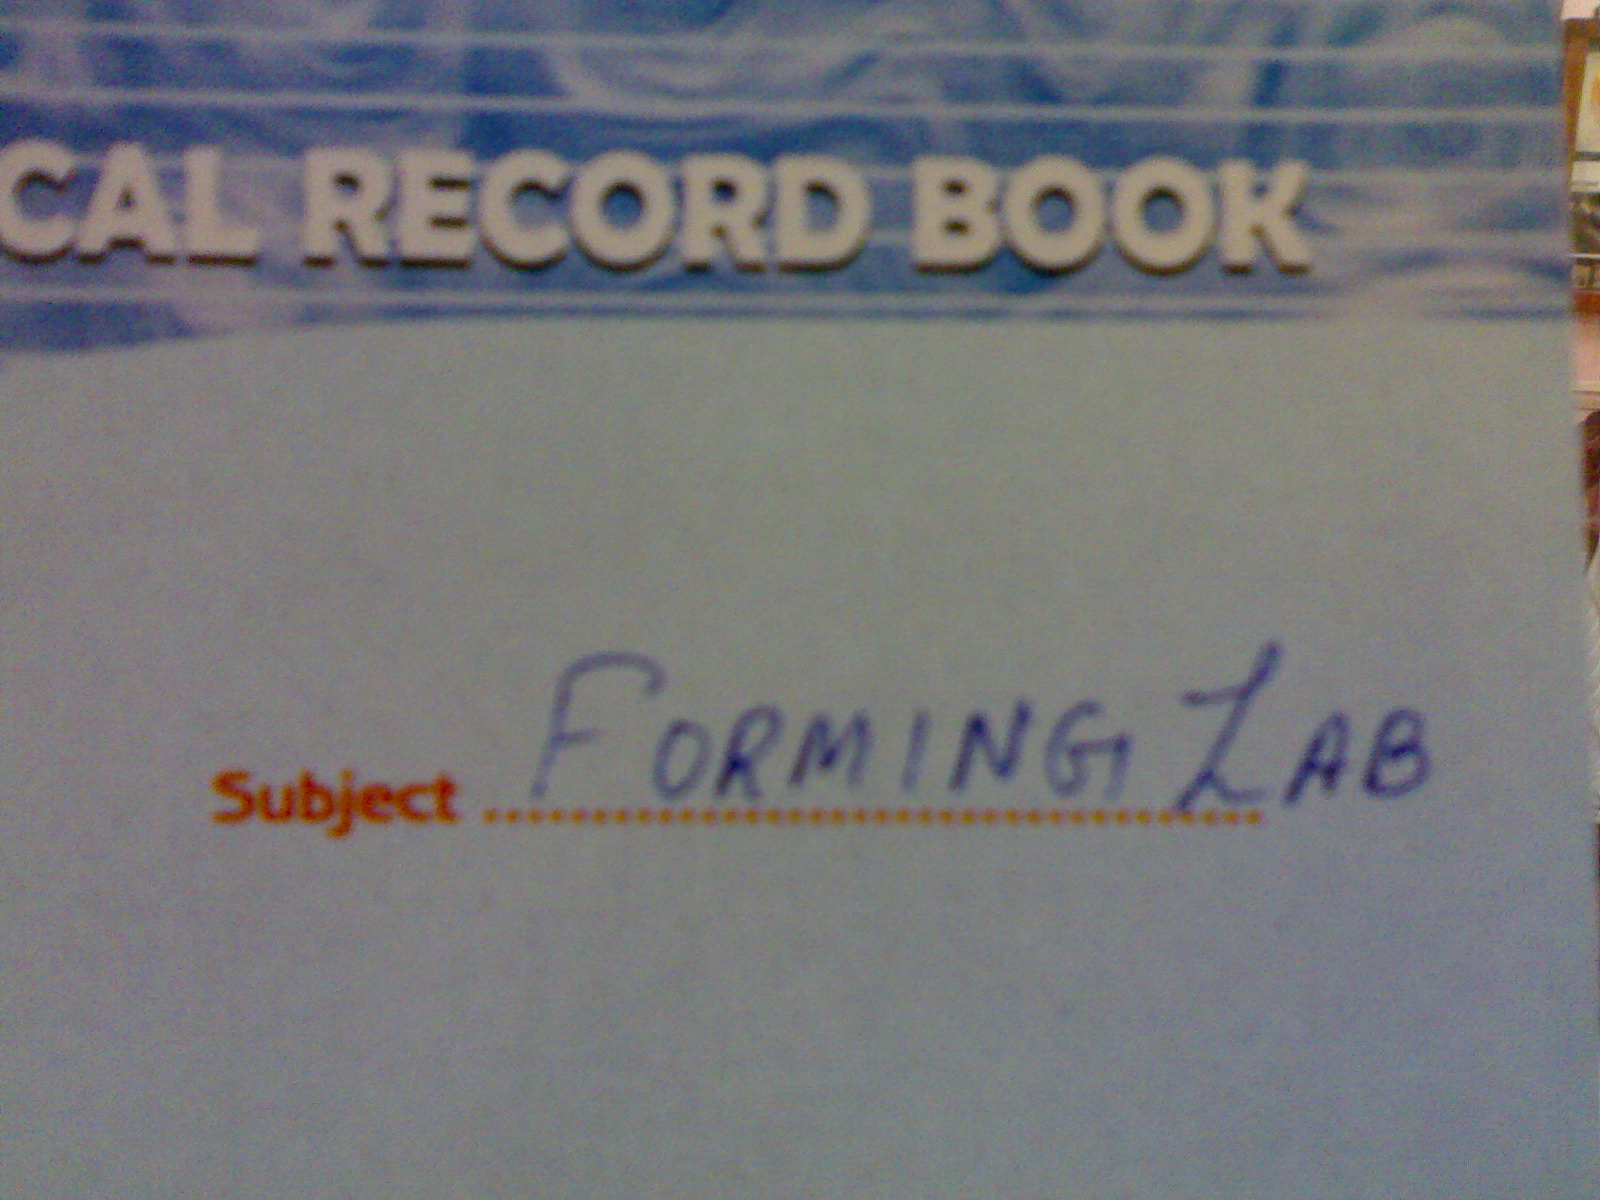 CAL RECORD BOOK
Subject .................................... FORMING LAB